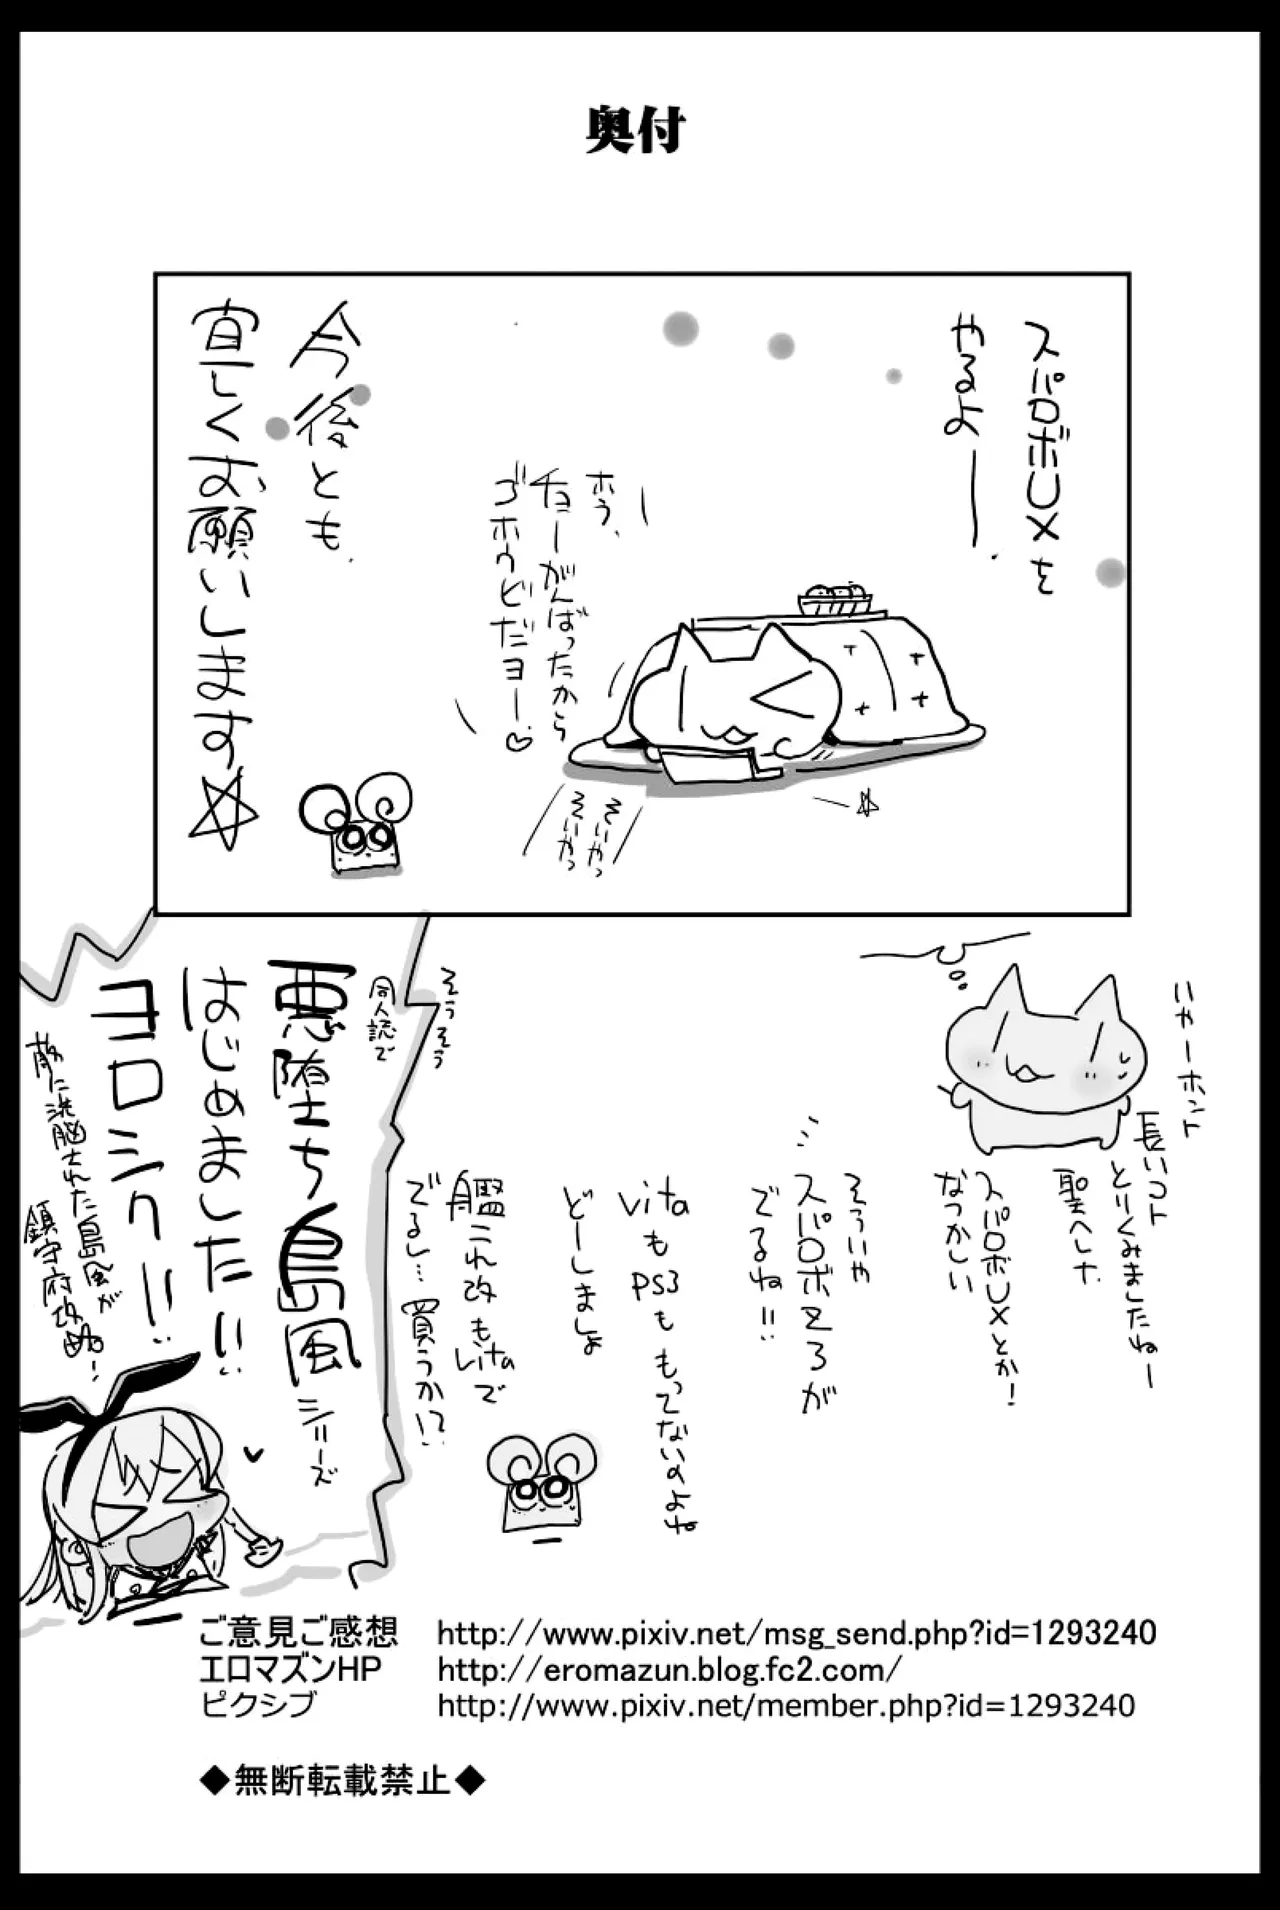 奥付
スパロボUXを
やるよー
ホラ、
チョーがんばったから
ゴホウビだヨー♡
そいやっ
そいやっ
今後とも
宜しくお願いします☆
いやーホント
長いコト
とりくみましたねー
聖へした
スパロボUXとか!
なつかしい
そういや
スパロボZ3が
でるね!!
vitaも
PS3ももってないのよね
どーしましょ
艦これ改もvitaで
でるし…買うか!?
そうそう
同人誌で
悪堕ち島風シリーズ
はじめました!!
ヨロシク!!
に洗脳された島風が
鎮守府攻め!
ご意見ご感想 http://www.pixiv.net/msg_send.php?id=1293240
エロマズンHP http://eromazun.blog.fc2.com/
ピクシブ http://www.pixiv.net/member.php?id=1293240
◆無断転載禁止◆